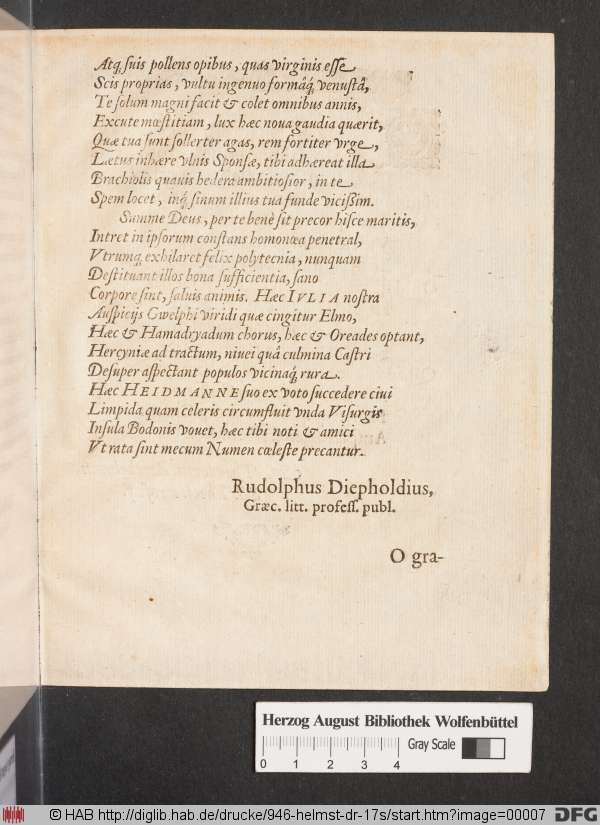 Atq; suis pollens opibus, quas virginis esse
Scis proprias, vultu ingenuo formâq; venustâ,
Te solum magni facit & colet omnibus annis,
Excute mœstitiam, lux hæc nova gaudia quærit,
Quæ tua sunt sollerter agas, rem fortiter vrge,
Lætus inhære vlnis Sponsæ, tibi adhæreat illa
Brachiolis quauis hedera ambitiosior, in te
Spem locet, inq; sinum illius tua funde vicißim.
Summe Deus, per te benè sit precor hisce maritis,
Intret in ipsorum constans homonœa penetral,
Vtrumq; exhilaret felix polytecnia, nunquam
Destituant illos bona sufficientia, sano
Corpore sint, saluis animis. Hæc IVLIA nostra
Auspicijs Gwelphi viridi quæ cingitur Elmo,
Hæc & Hamadryadum chorus, hæc & Oreades optant,
Hercyniæ ad tractum, niuei quâ culmina Castri
Desuper aspectant populos vicinaq; rura.
Hæc HEIDMANNE suo ex voto succedere ciui
Limpida quam celeris circumfluit vnda Visurgis
Insula Bodonis vouet, hæc tibi noti & amici
Vt rata sint mecum Numen cœleste precantur.
Rudolphus Diepholdius,
Græc. litt. profess. publ.
O gra-
Herzog August Bibliothek Wolfenbüttel
Gray Scale
0 1 2 3 4
© HAB http://diglib.hab.de/drucke/946-helmst-dr-17s/start.htm?image=00007
DFG